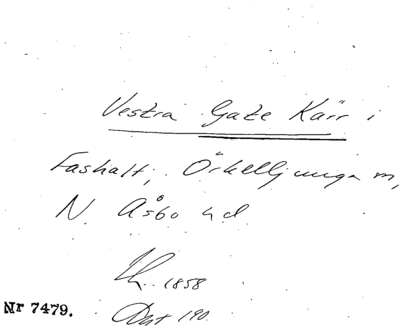 Vestra Gate Kärr i
Fashalt, Örkelljunga m,
N. Åsbo hd
1858
Nr 7479.
190.